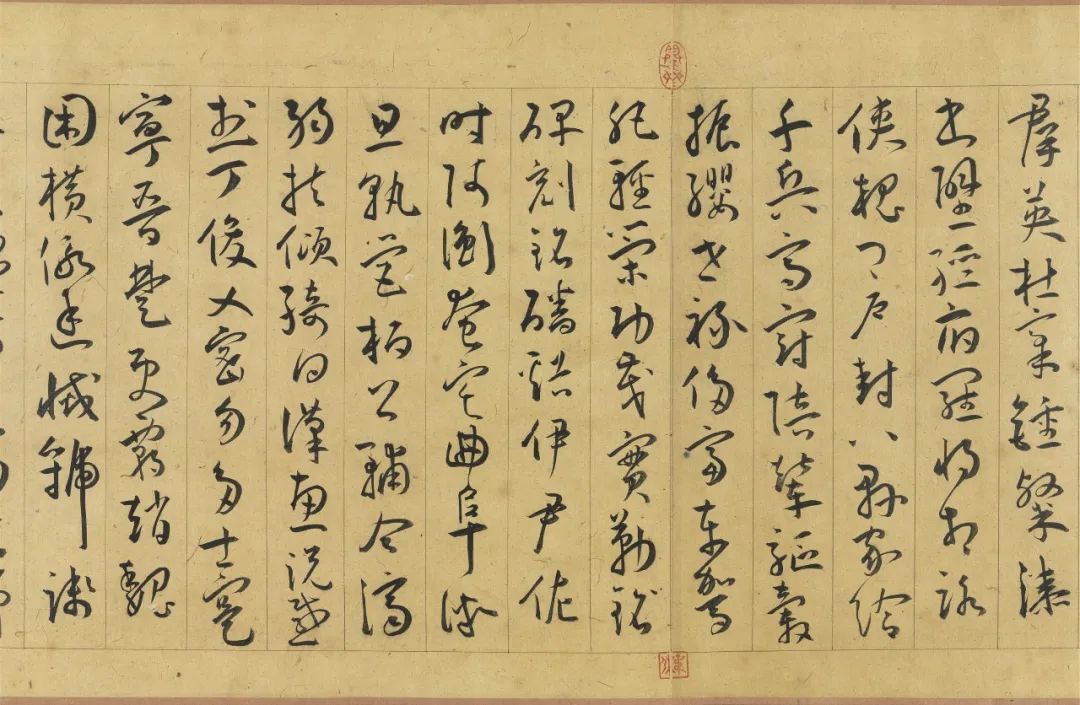 羣英杜稾鍾隸漆
書壁經府羅將相路
俠槐卿戶封八縣家給
千兵高冠陪輦驅轂
振纓世祿侈富車駕
肥輕策功茂實勒銘
碑刻銘磻谿伊尹佐
時阿衡奄宅曲阜微
旦孰營桓公輔合濟
弱扶傾綺回漢惠說感
武丁俊乂密勿多士寔
寧晉楚更霸趙魏
困橫假途滅虢踐